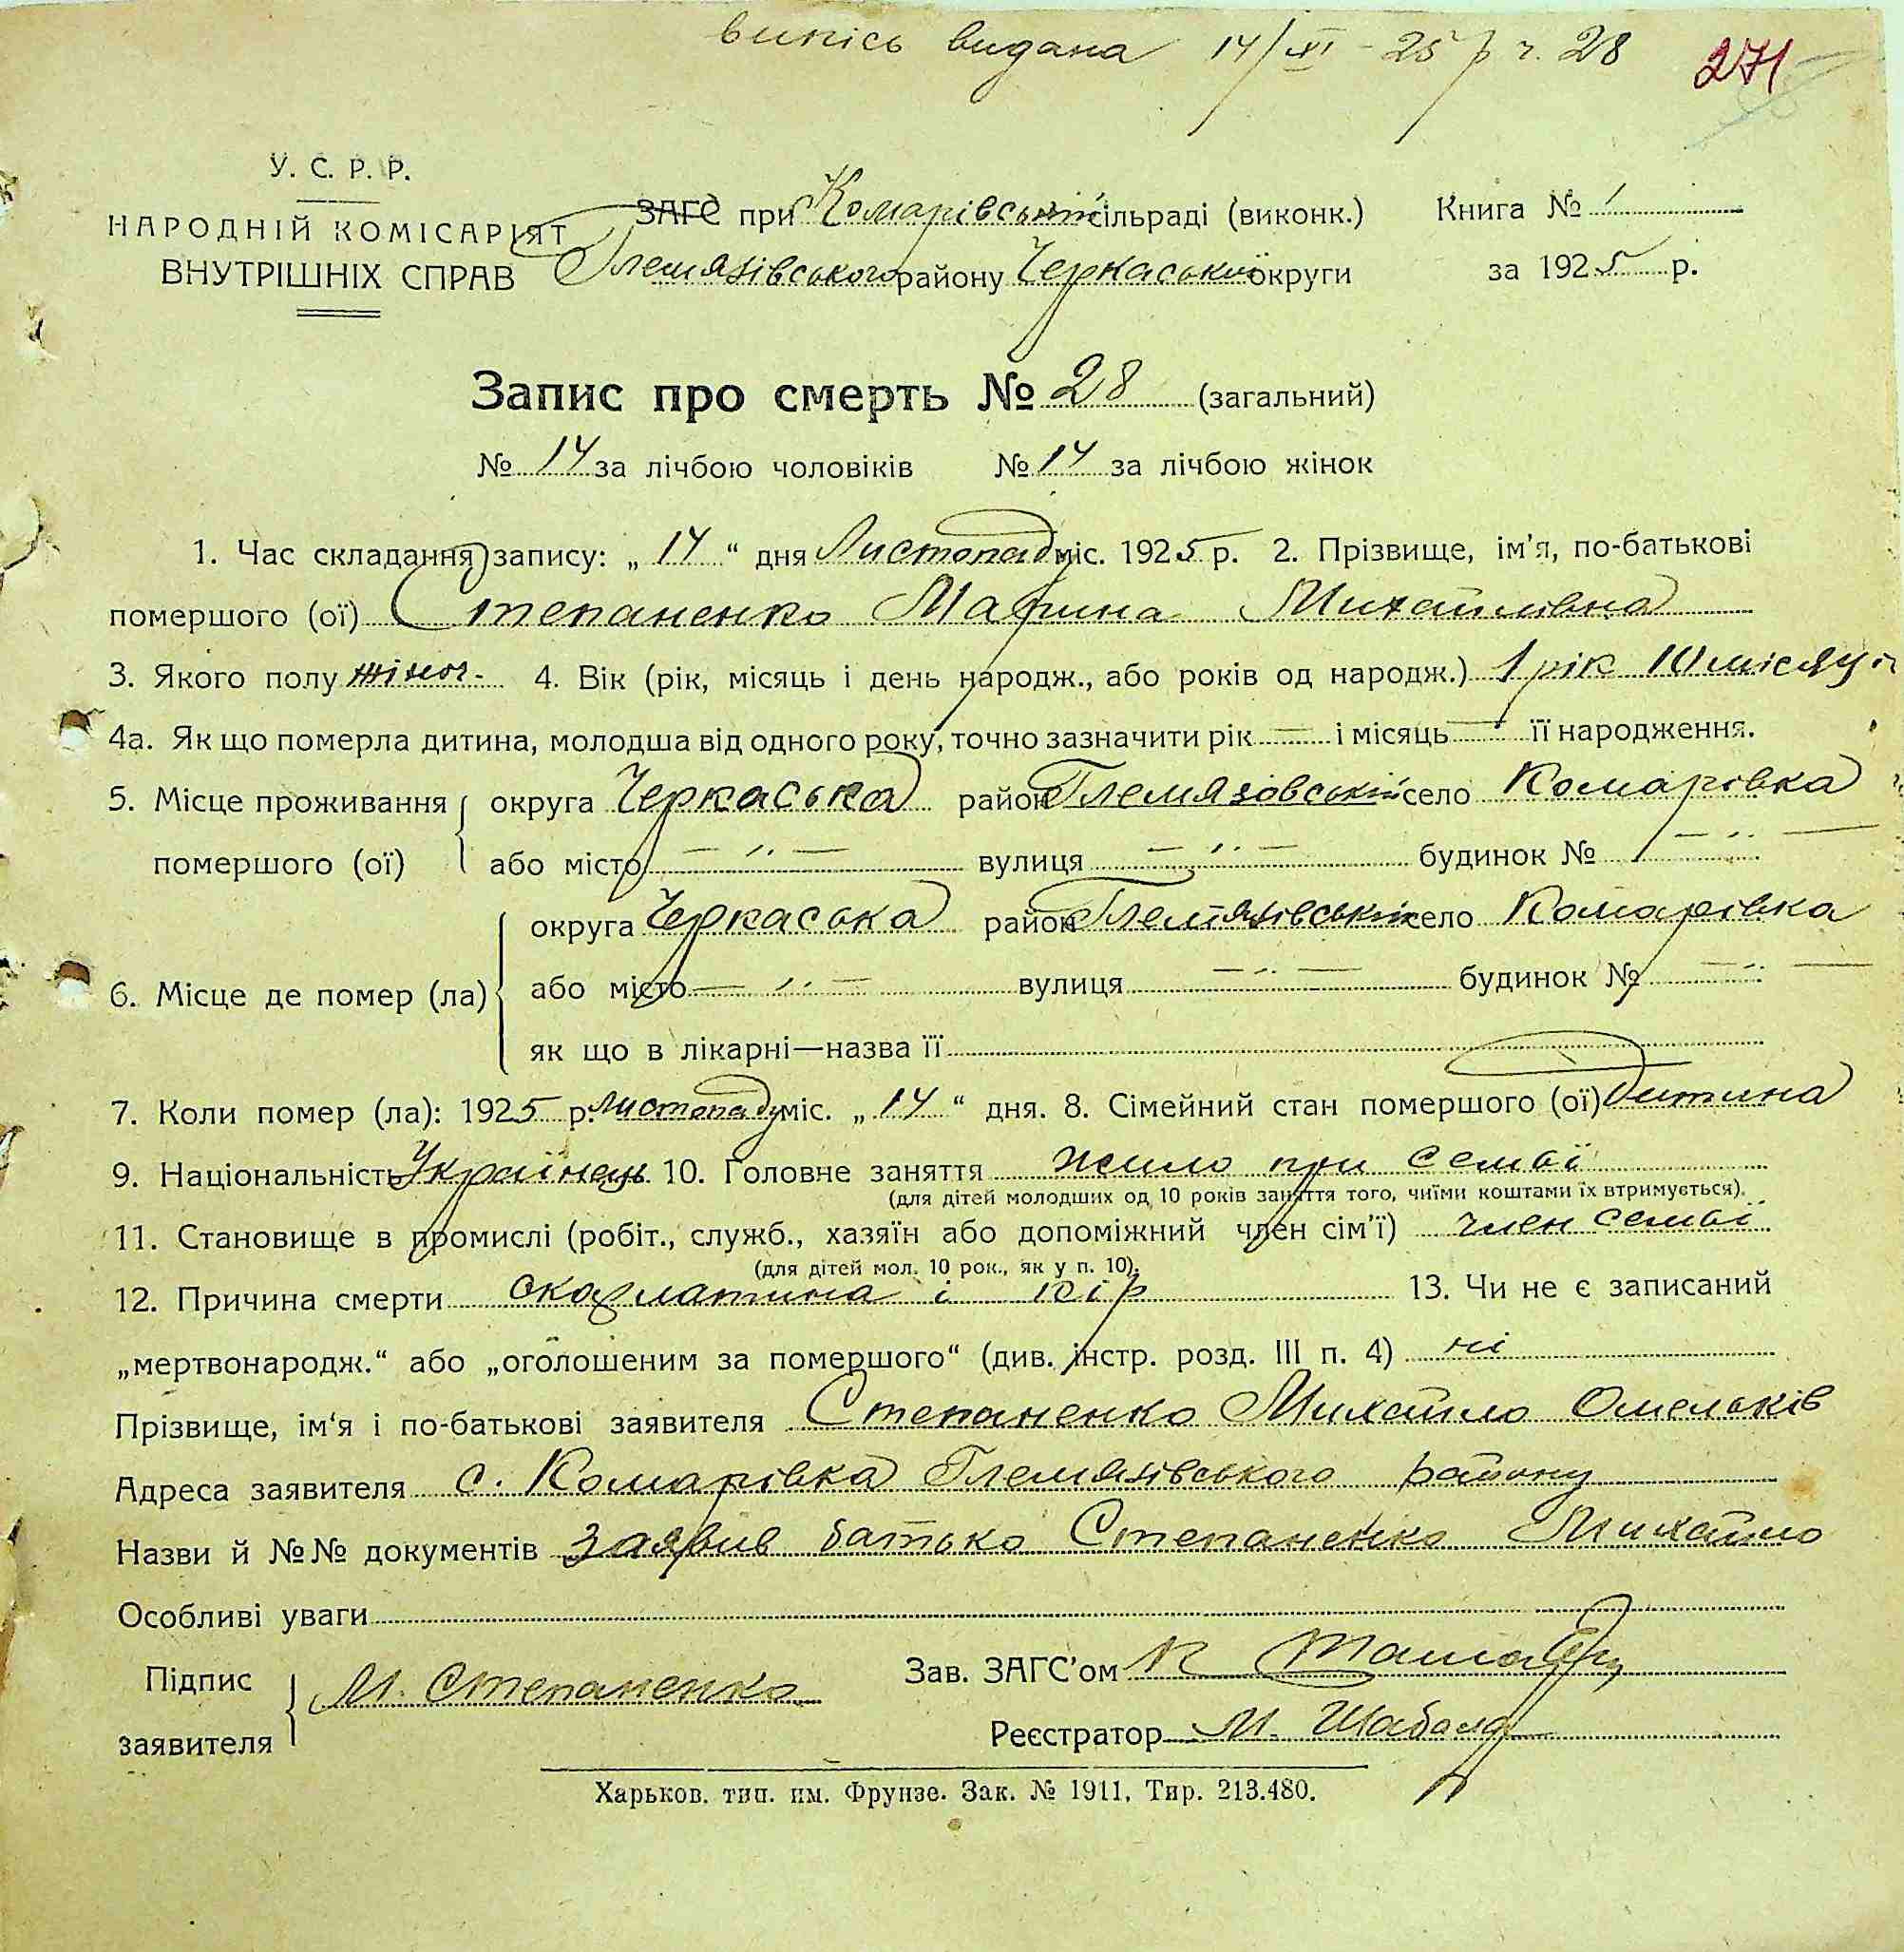 випісь видана 14/XI - 25 р ч. 28
271
У. С. Р. Р.
НАРОДНІЙ КОМІСАРІЯТ
ВНУТРІШНІХ СПРАВ
ЗАГС при Комарівській сільраді (виконк.) Книга № 1
Глемязівського району Черкаської округи за 1925 р.
Запис про смерть № 28 (загальний)
№ 14 за лічбою чоловіків № 14 за лічбою жінок
1. Час складання запису: „ 14 “ дня Листопад міс. 1925 р. 2. Прізвище, ім'я, по-батькові
помершого (ої) Степаненко Марина Михайлівна
3. Якого полу жіноч. 4. Вік (рік, місяць і день народж., або років од народж.) 1 рік 10 місяці
4а. Як що померла дитина, молодша від одного року, точно зазначити рік — і місяць — її народження.
5. Місце проживання округа Черкаська район Глемязовський село Комарівка
помершого (ої) або місто — „ — вулиця — „ — будинок № — „ —
округа Черкаська район Глемязівський село Комарівка
6. Місце де помер (ла) або місто — „ — вулиця — „ — будинок № — „ —
як що в лікарні—назва її
7. Коли помер (ла): 1925 р. листопаду міс. „ 14 “ дня. 8. Сімейний стан помершого (ої) Дитина
9. Національність Українець 10. Головне заняття жило при семьї
(для дітей молодших од 10 років заняття того, чиїми коштами їх втримується).
11. Становище в промислі (робіт., служб., хазяїн або допоміжний член сім'ї) член семьї
(для дітей мол. 10 рок., як у п. 10).
12. Причина смерти скарлатина і кір 13. Чи не є записаний
„мертвонародж.“ або „оголошеним за помершого“ (див. інстр. розд. III п. 4) ні
Прізвище, ім'я і по-батькові заявителя Степаненко Михайло Омельків
Адреса заявителя с. Комарівка Глемязівського району
Назви й №№ документів заявив батько Степаненко Михайло
Особливі уваги
Підпис заявителя М. Степаненко
Зав. ЗАГС'ом К
Реєстратор М. Шабала
Харьков. тип. им. Фрунзе. Зак. № 1911. Тир. 213.480.